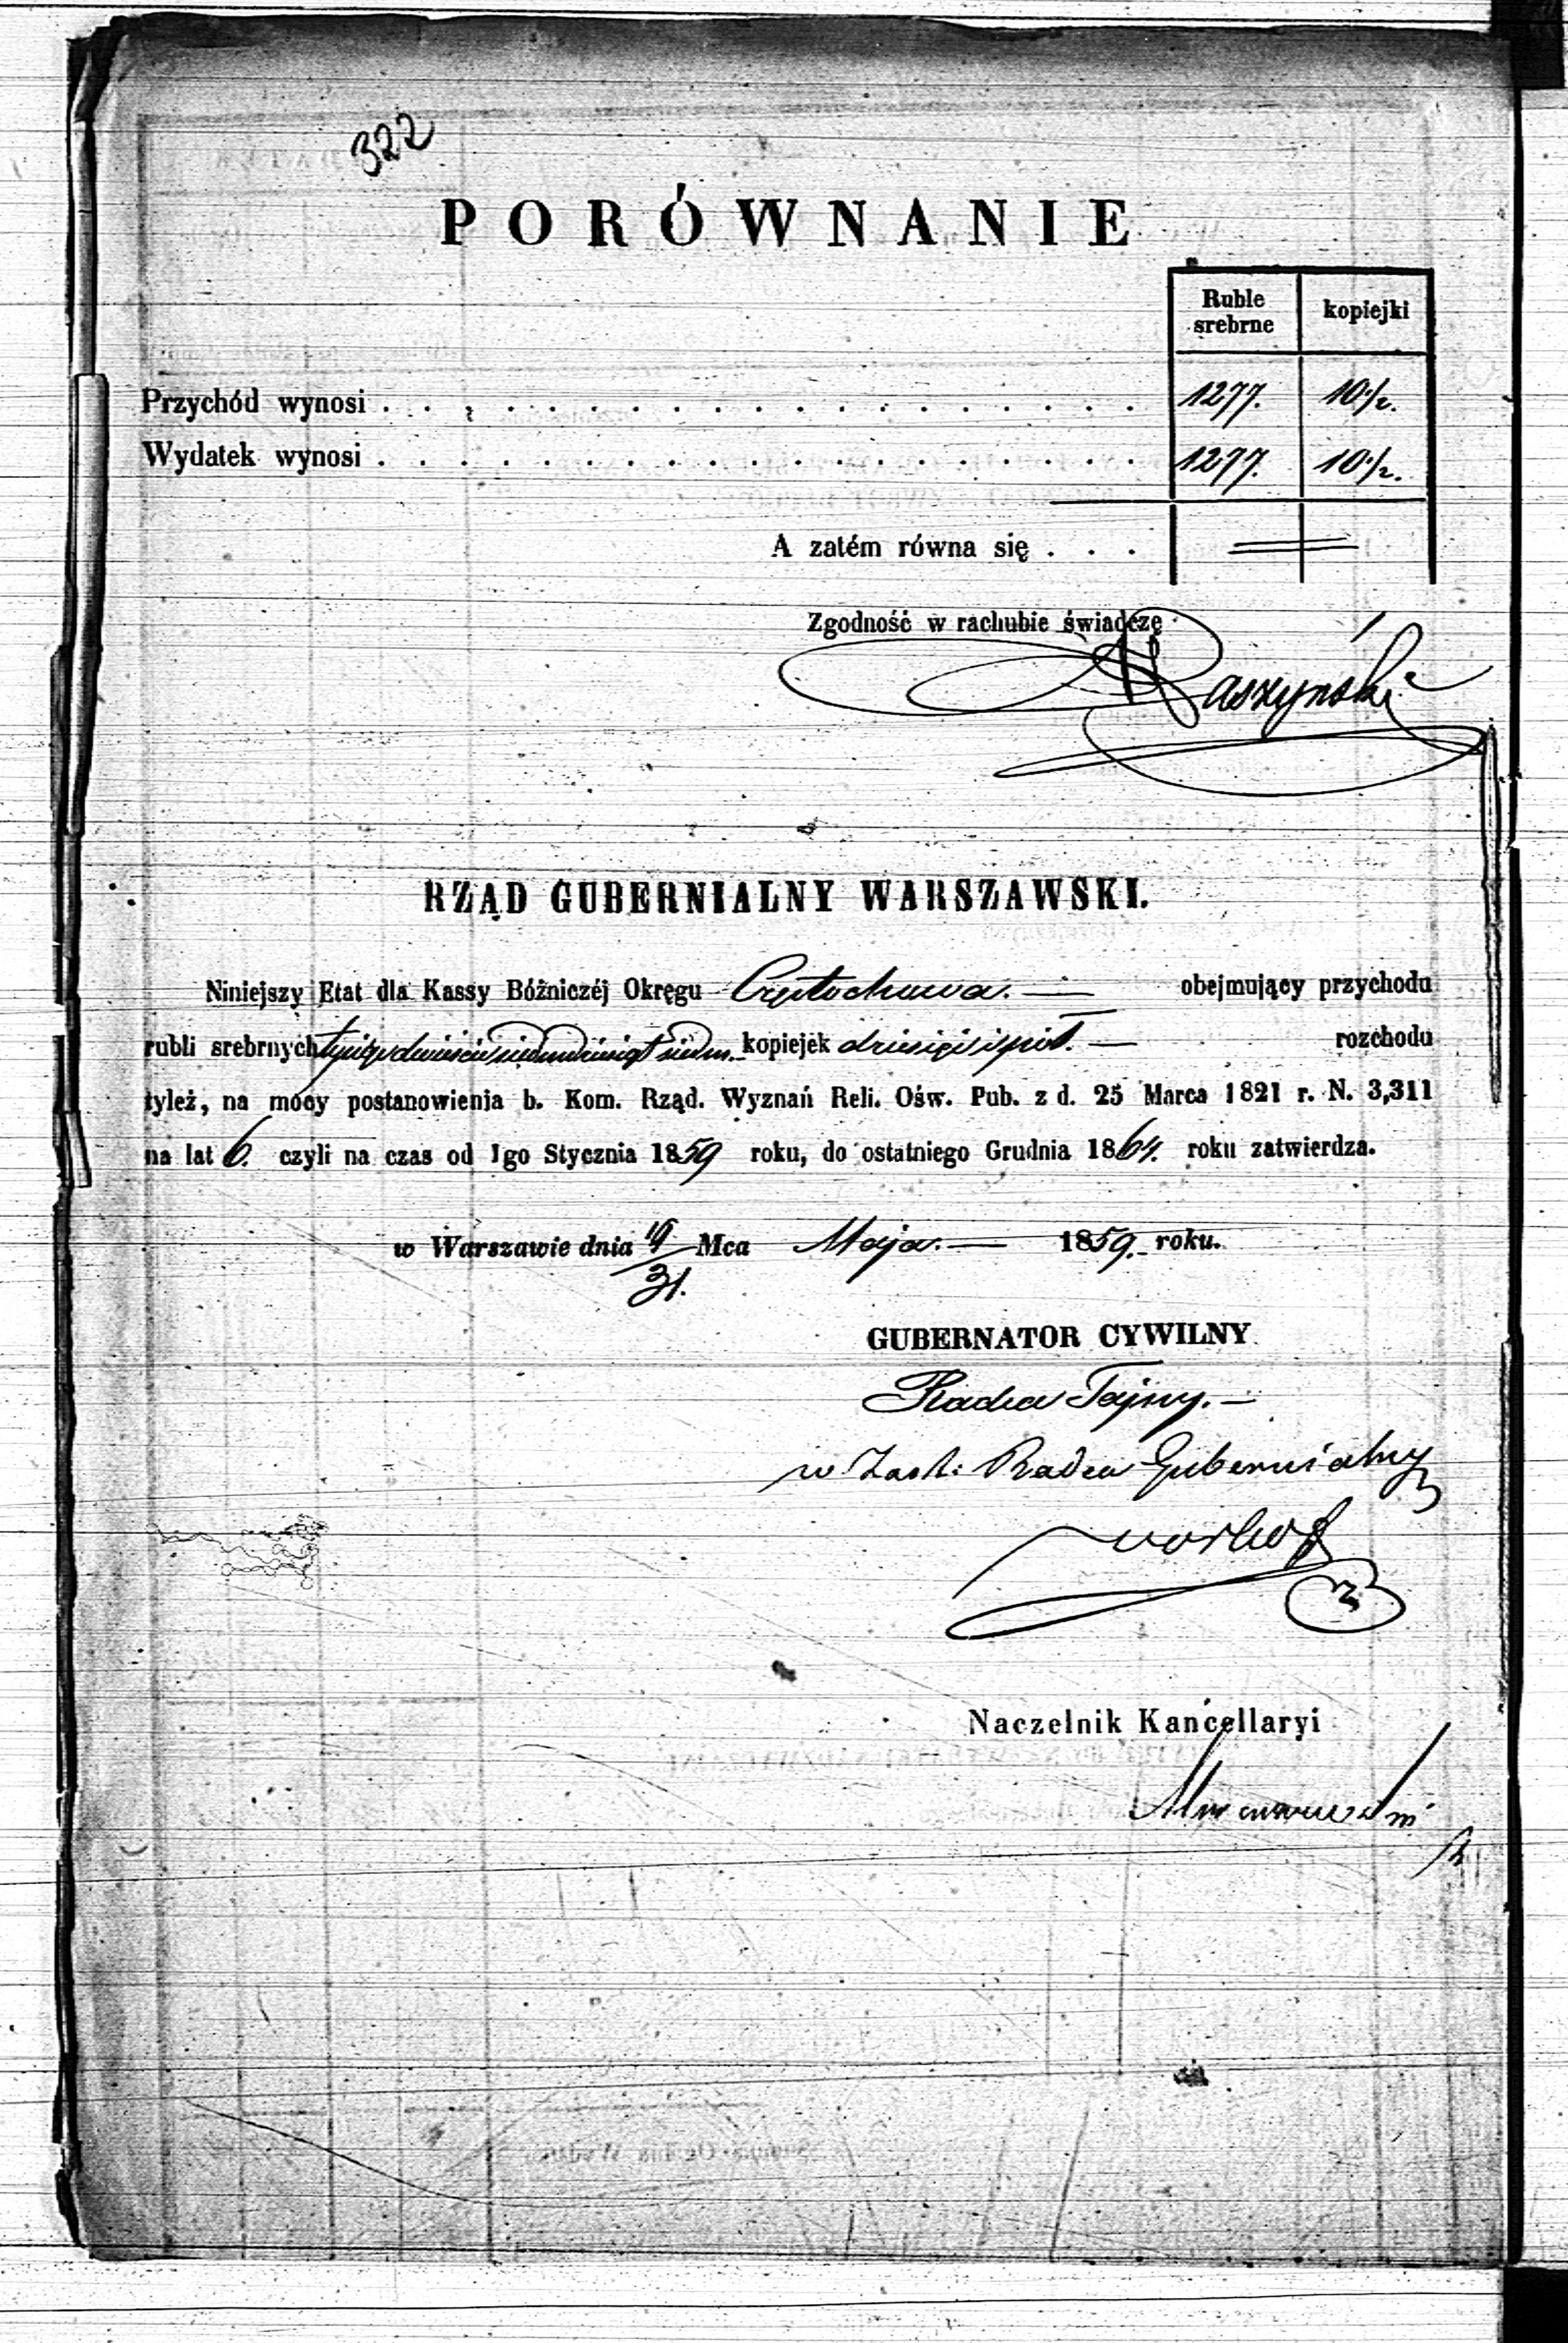 322
PORÓWNANIE
Ruble srebrne kopiejki
Przychód wynosi . . . . . . . . . . . . . . . . . . . 1277. 10 1/2.
Wydatek wynosi . . . . . . . . . . . . . . . . . . . 1277. 10 1/2.
A zatém równa się . . .
Zgodność w rachubie świadczę
Paszyński
RZĄD GUBERNIALNY WARSZAWSKI.
Niniejszy Etat dla Kassy Bóżniczéj Okręgu Częstochowa. — obejmujący przychodu
rubli srebrnych tysiąc dwieście siedmdziesiąt siedm. kopiejek dziesięć i pół. — rozchodu
tyleż, na mocy postanowienia b. Kom. Rząd. Wyznań Reli. Ośw. Pub. z d. 25 Marca 1821 r. N. 3,311
na lat 6. czyli na czas od 1go Stycznia 1859 roku, do ostatniego Grudnia 1864. roku zatwierdza.
w Warszawie dnia 19/31. Mca Maja. — 1859. roku.
GUBERNATOR CYWILNY
Radca Tajny. —
w Zast: Radca Gubernialny
Naczelnik Kancellaryi